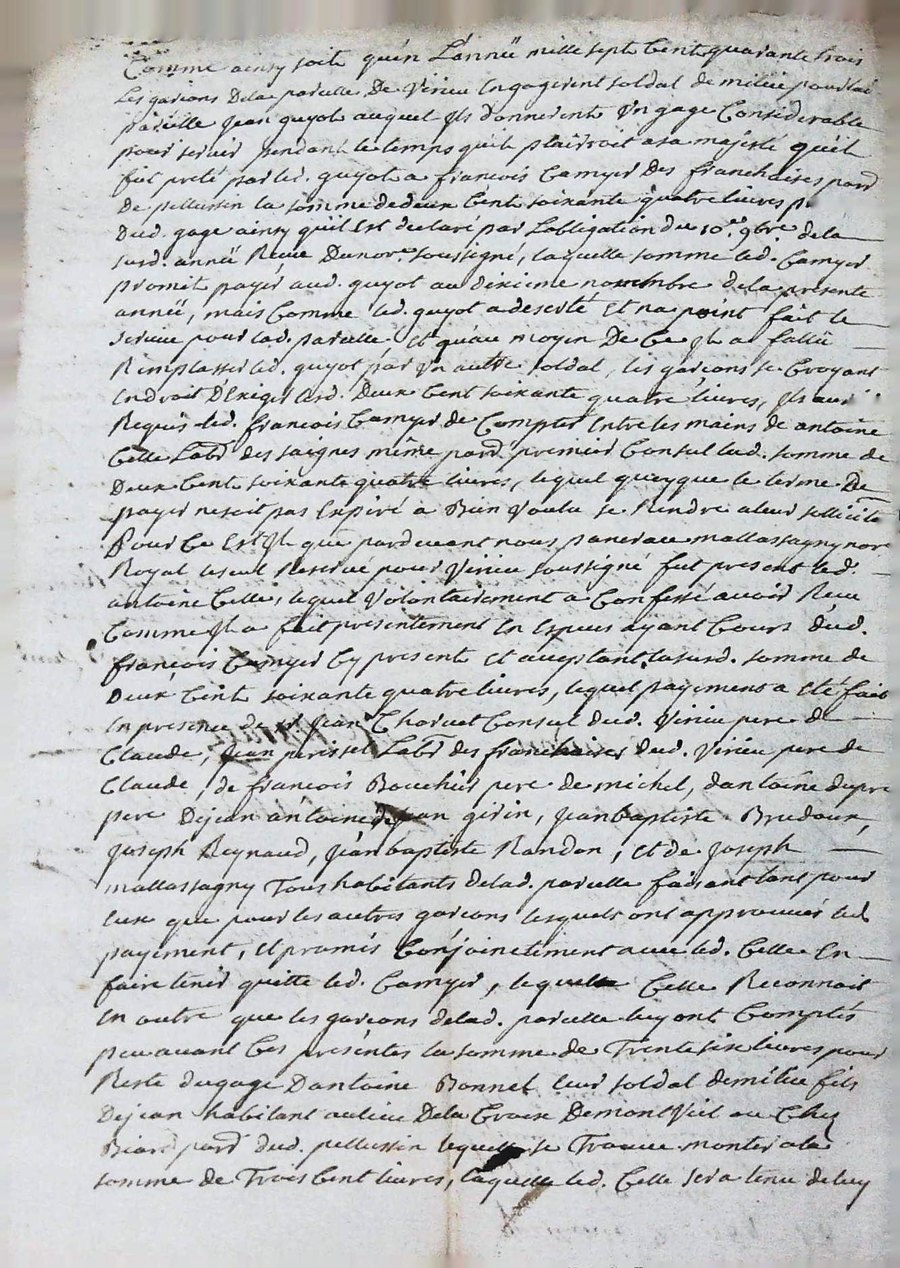 Comme ainsy soit qu'en L'année mille sept Cent quarante trois
Les garçons Dela parcelle De Virieu Engagerent soldat de milice pour lad.
parcelle Jean guyot auquel Ils donnerent Un gage Considerable
pour servir pendant le temps qu'il plairroit a sa majesté qu'il
fut preté par led. guyot a françois Camyer Des franchises parr
De pellussin la somme de deux Cent soixante quatre livres
Dud. gage ainsy qu'il Est declaré par Lobligation du 10.e 9bre dela
surd. année Reçue Du nore. soussigné, laquelle somme led. Camyer
promit payer aud. guyot au dixieme novembre dela présente
année, mais Comme led. guyot a deserté Et na point fait le
service pour lad. parcelle Et qu'au moyen De Ce Jl a fallu
Remplasser led. guyot par Un autre soldat, les garçons se Croyant
En droit D'Exiger lesd. Deux Cent soixante quatre livres, Ils
Requis led. françois Camyer de Compter Entre les mains de antoine
Celle Labr des saignes même parr premier Consul lad. somme de
Deux Cent soixante quatre livres, lequel queyque le terme De
payer ne soit pas Expiré a Bien Voulu se Rendre a leur
Pour Ce Est Jl que pardevant nous pancrace mallassagny nore
Royal Reservé pour Virieu soussigné fut present led.
antoine Celle, lequel Volontairement a Confessé avoir Reçu
Comme Jl a fait presentement En Especes ayant Cours dud.
françois Camyer Cy present Et acceptant lasurd. somme de
Deux Cent soixante quatre livres, lequel payement a Eté fait
En presence de Jean Chorvet Consul dud. Virieu pere de
Claude, Jean perisset Labr des franchises dud. Virieu pere de
Claude, de françois Bouchis pere de michel, dantoine dupre
pere De jean antoine de jean girin, Jean baptiste Brudoux,
Joseph Reynaud, Jean baptiste Randon, Et de Joseph
mallassagny Tous habitants delad. parcelle faisant tant pour
Eux que pour les autres garçons lesquels ont approuvé led.
payement, Et promis Conjoinctement avec led. Celle En
faire tenir quitte led. Camyer, lequel Celle Reconnoit
En outre que les garçons delad. parcelle luy ont Comptés
peu avant Ces présentes la somme de Trente six livres pour
Reste du gage D'antoine Bonnet leur soldat de milice fils
De jean habitant au lieu De la Croix De montvieil au Chez
Biard parr dud. pellussin lequelle se Trouve monter a la
somme de Trois Cent livres, laquelle led. Celle sera tenu de luy